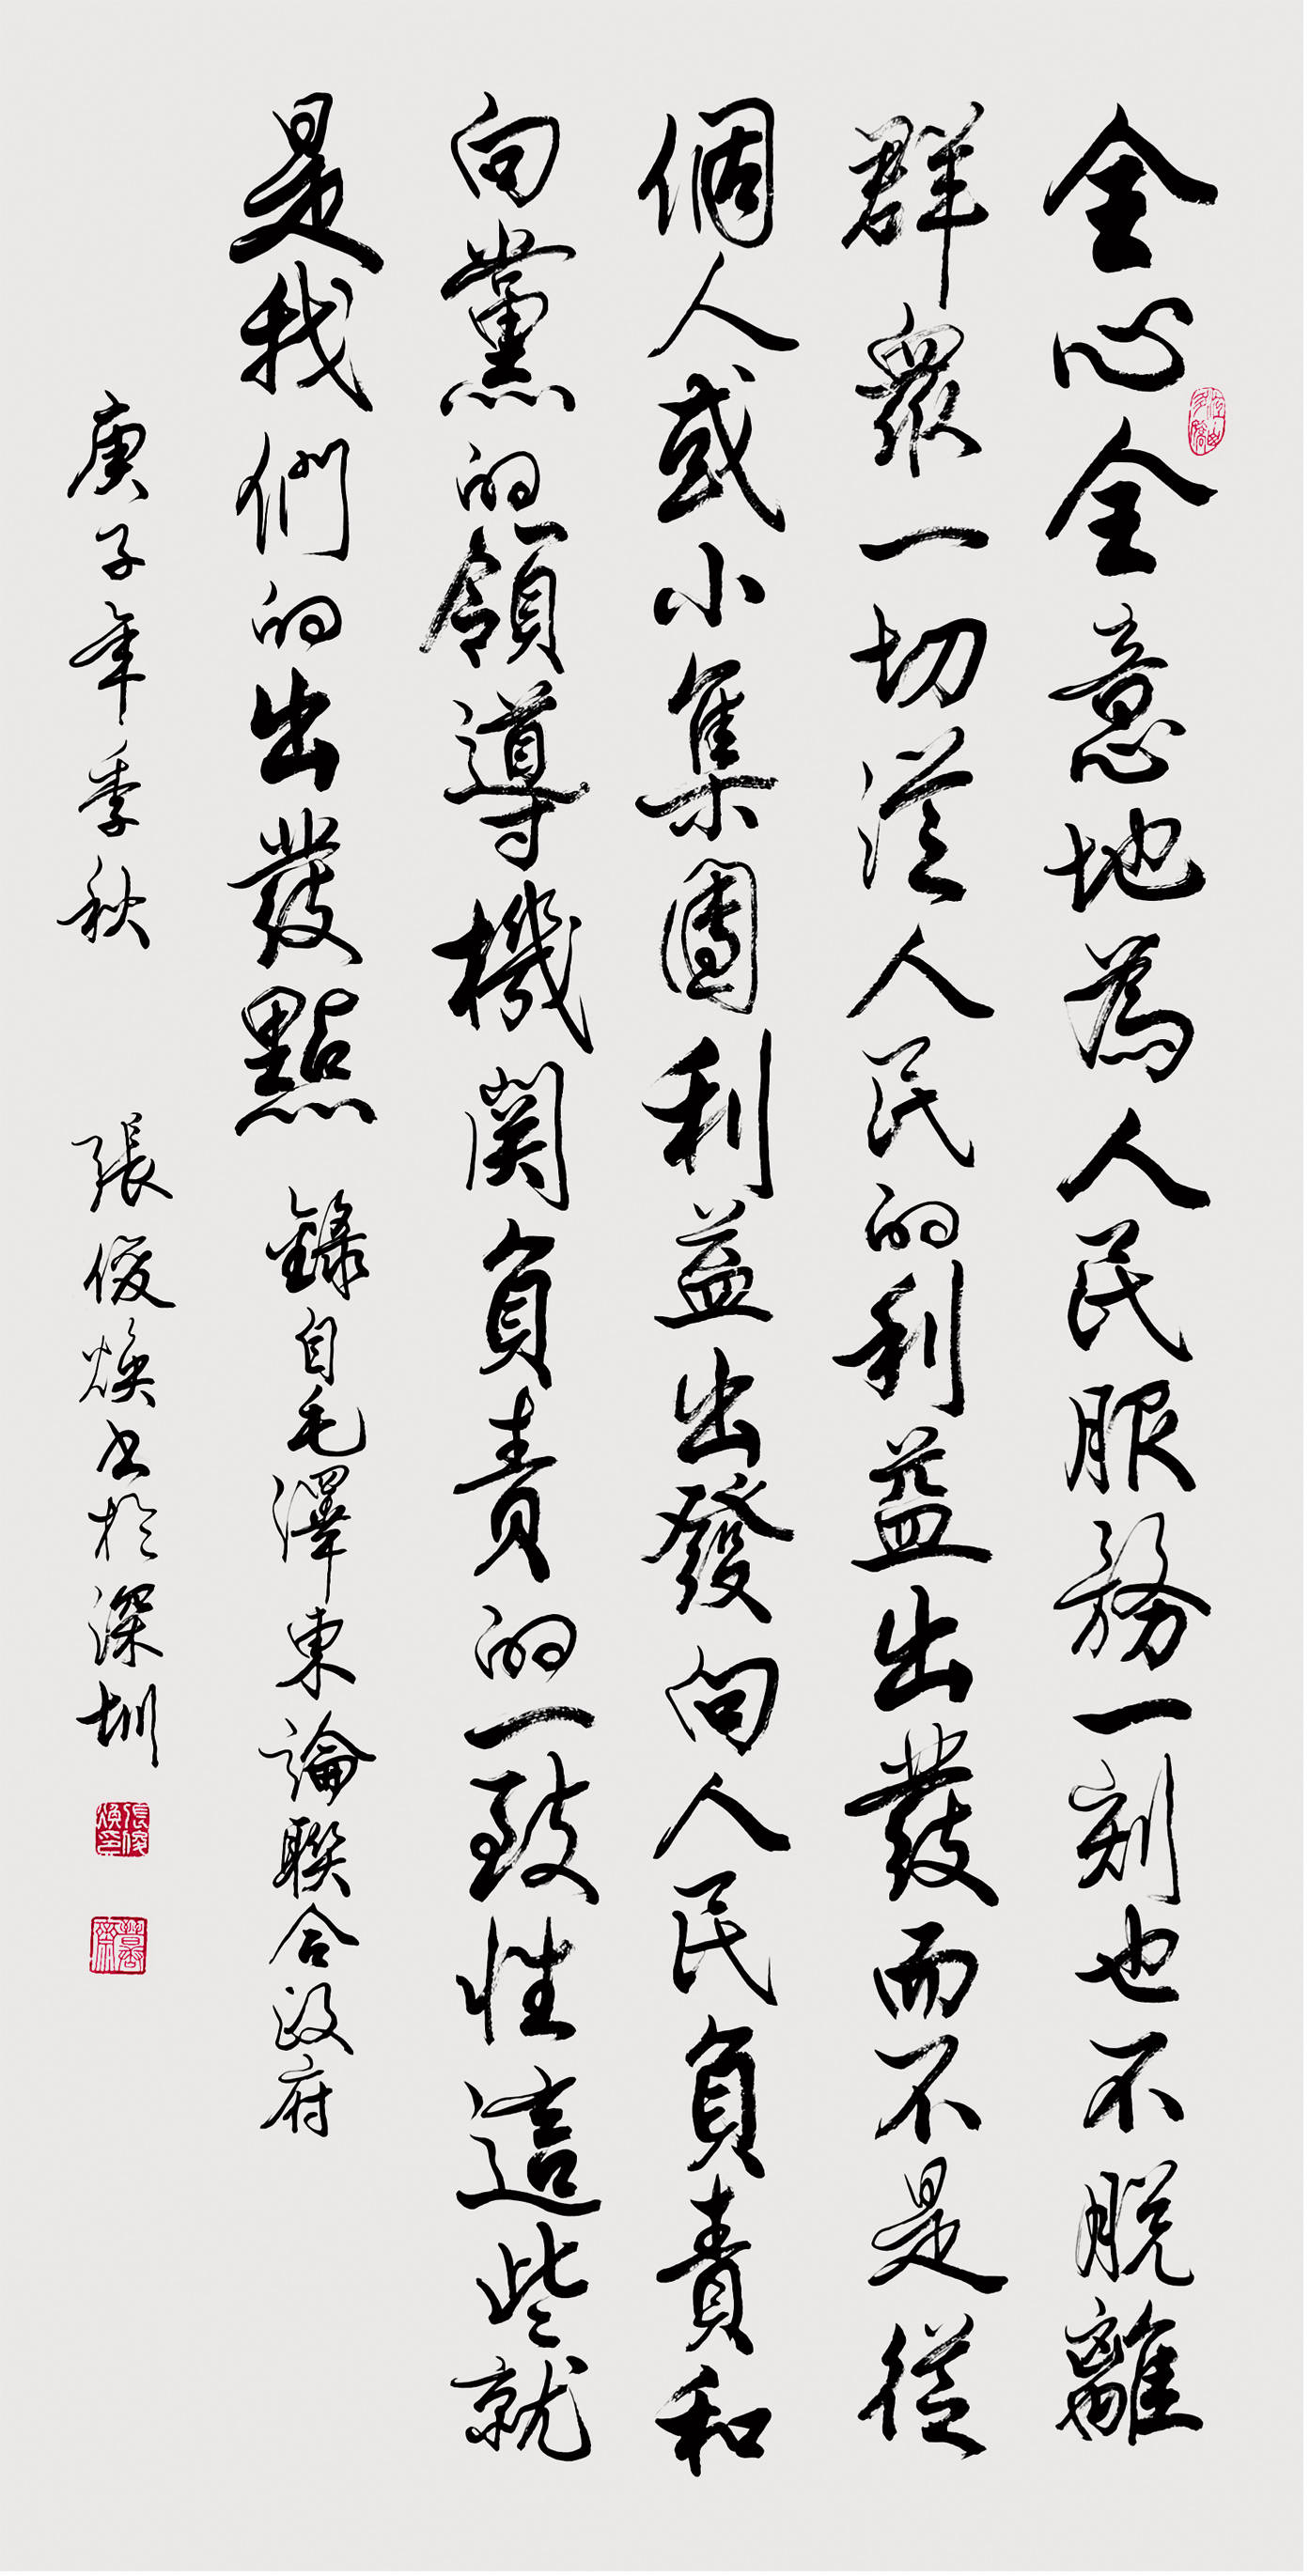 全心全意地為人民服務一刻也不脫離
群眾一切從人民的利益出發而不是從
個人或小集團利益出發向人民負責和
向黨的領導機関負責的一致性這些就
是我們的出發點 錄自毛澤東論聯合政府
庚子年季秋 張俊煥書於深圳
張俊煥印